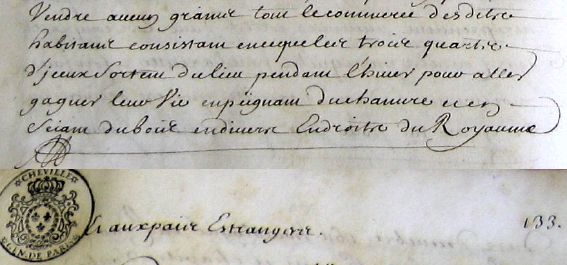 Vendre aucuns grains tout le commerce desdits
habitans consistant en ce que les trois quartz
d'jceux sortent du lieu pendant l'hiver pour aller
gagner leur vie en peignant du chanvre et en
sciant du bois en divers Endroits du Royaume
CHEVILLE
GEN DE PARIS
Et aux pais Estrangers. 133.